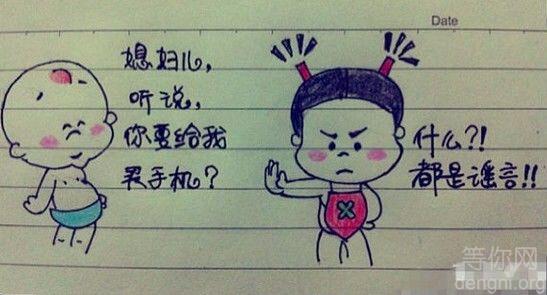 Date
媳妇儿,
听说,
你要给我
买手机?
什么?!
都是谣言!!
等你网
dengni.org